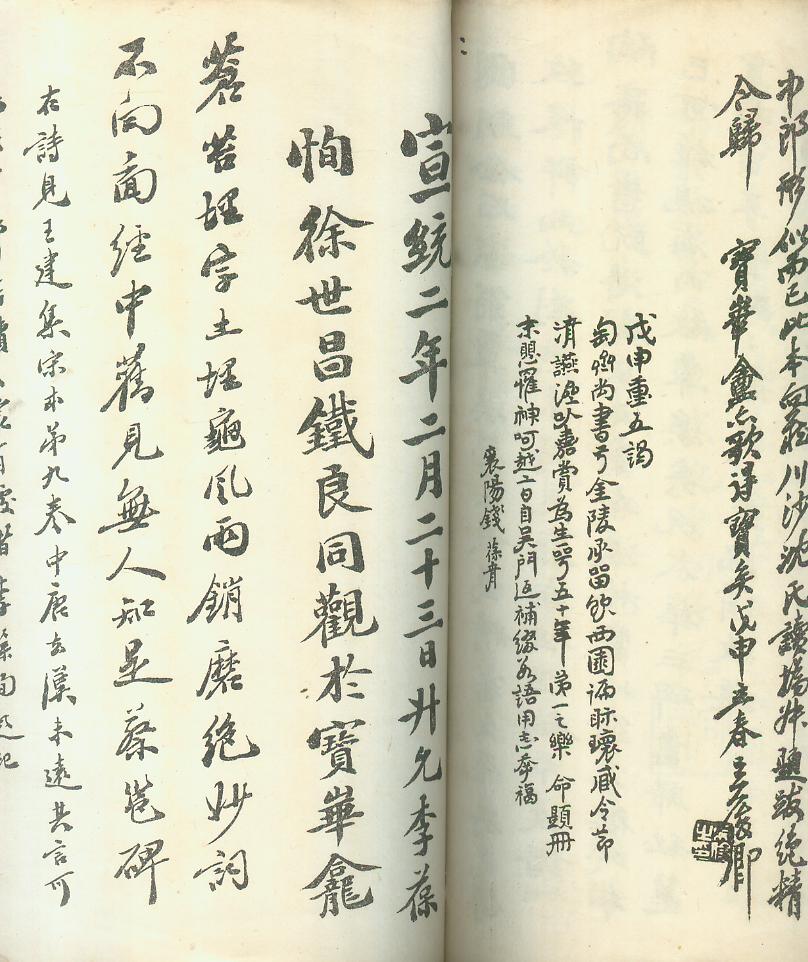 中郎形似而已此本向藏川沙沈氏讀搨並題跋絕精
今歸 寶華盦亦歌得寶矣戊申立春王瓘
戊申重五謁
匋齋尚書于金陵承留飲西園遍眎瓌藏令節
清讌渥以嘉賞為生平五十年第一之樂 命題冊
末恩懼神呵越二日自吳門返補綴數語用志眷福
襄陽錢葆青
宣統二年二月二十三日升允李葆
恂徐世昌鐵良同觀於寶華龕
蒼苔埋字土埋龜風雨銷磨絕妙詞
不向圖經中舊見無人知是蔡邕碑
右詩見王建集宋本第九卷中唐去漢未遠其言可